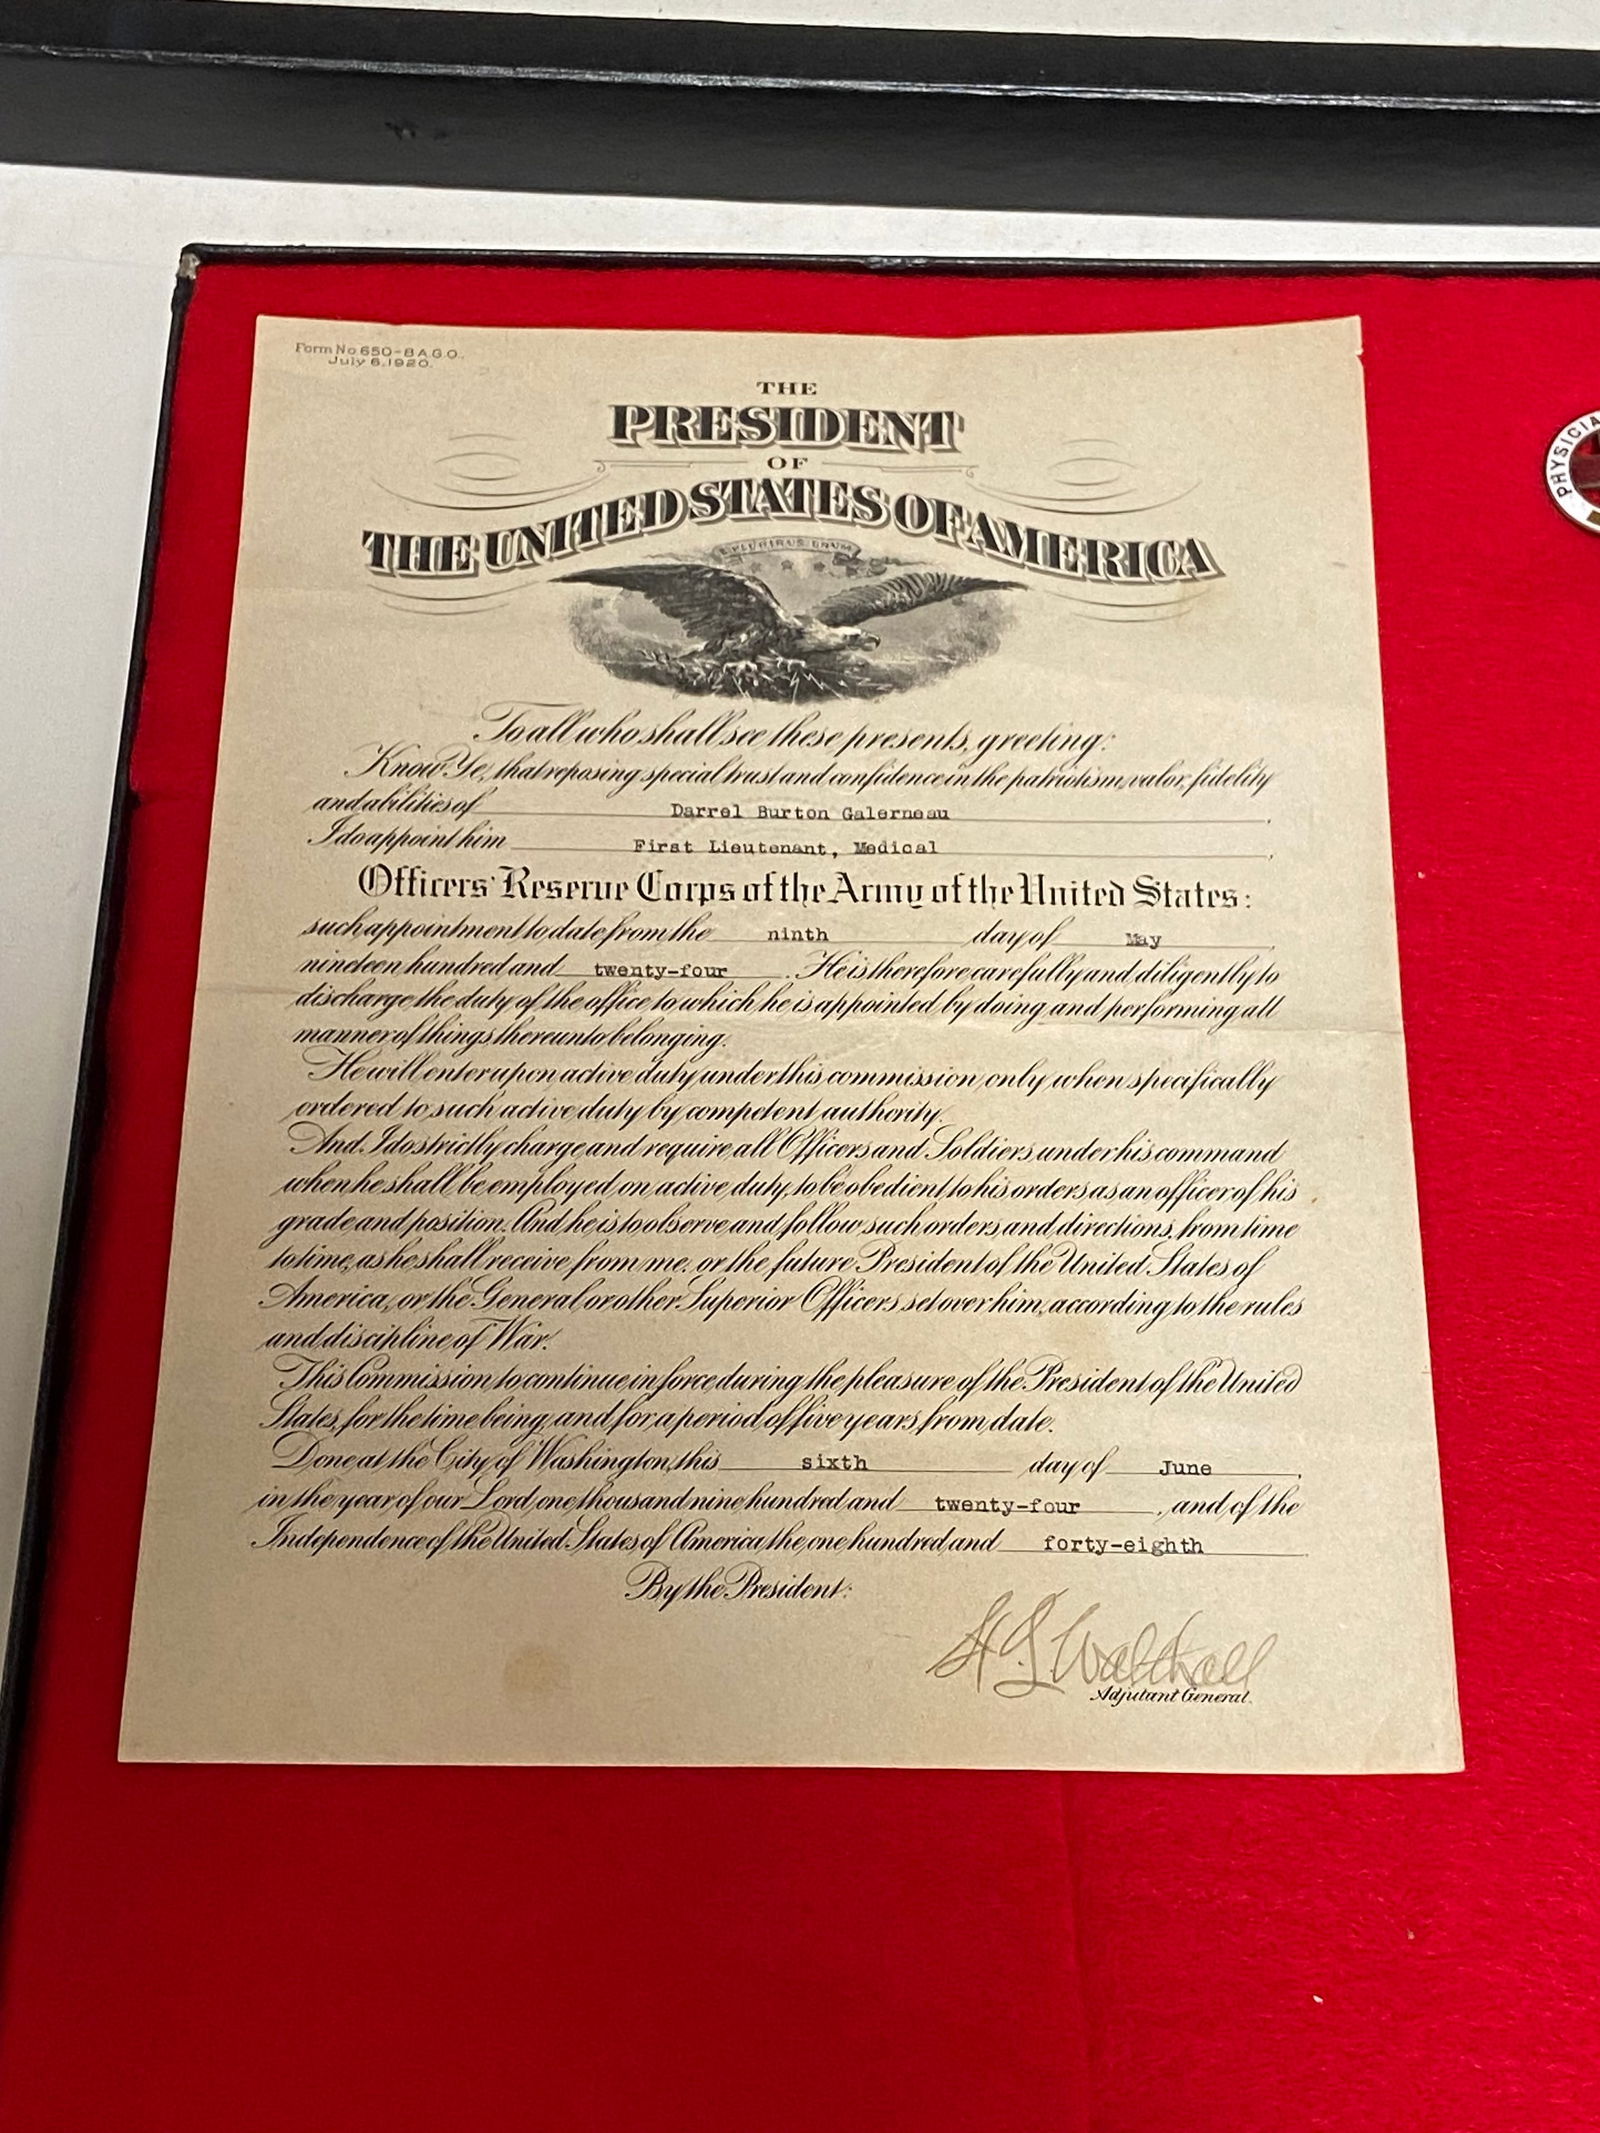 Form No. 650-8 A.G.O.
July 6, 1920.
THE
PRESIDENT
OF
THE UNITED STATES OF AMERICA
E PLURIBUS UNUM
PHYSICIA
To all who shall see these presents, greeting:
Know Ye, that reposing special trust and confidence in the patriotism, valor, fidelity
and abilities of Darrel Burton Galerneau,
I do appoint him First Lieutenant, Medical,
Officers' Reserve Corps of the Army of the United States:
such appointment to date from the ninth day of May,
nineteen hundred and twenty-four. He is therefore carefully and diligently to
discharge the duty of the office to which he is appointed by doing and performing all
manner of things thereunto belonging.
He will enter upon active duty under this commission only when specifically
ordered to such active duty by competent authority.
And I do strictly charge and require all Officers and Soldiers under his command
when he shall be employed on active duty, to be obedient to his orders as an officer of his
grade and position. And he is to observe and follow such orders and directions, from time
to time, as he shall receive from me, or the future President of the United States of
America, or the General or other Superior Officers set over him, according to the rules
and discipline of War.
This Commission to continue in force during the pleasure of the President of the United
States, for the time being, and for a period of five years from date.
Done at the City of Washington, this sixth day of June,
in the year of our Lord, one thousand nine hundred and twenty-four, and of the
Independence of the United States of America the one hundred and forty-eighth.
By the President:
Walthall
Adjutant General.